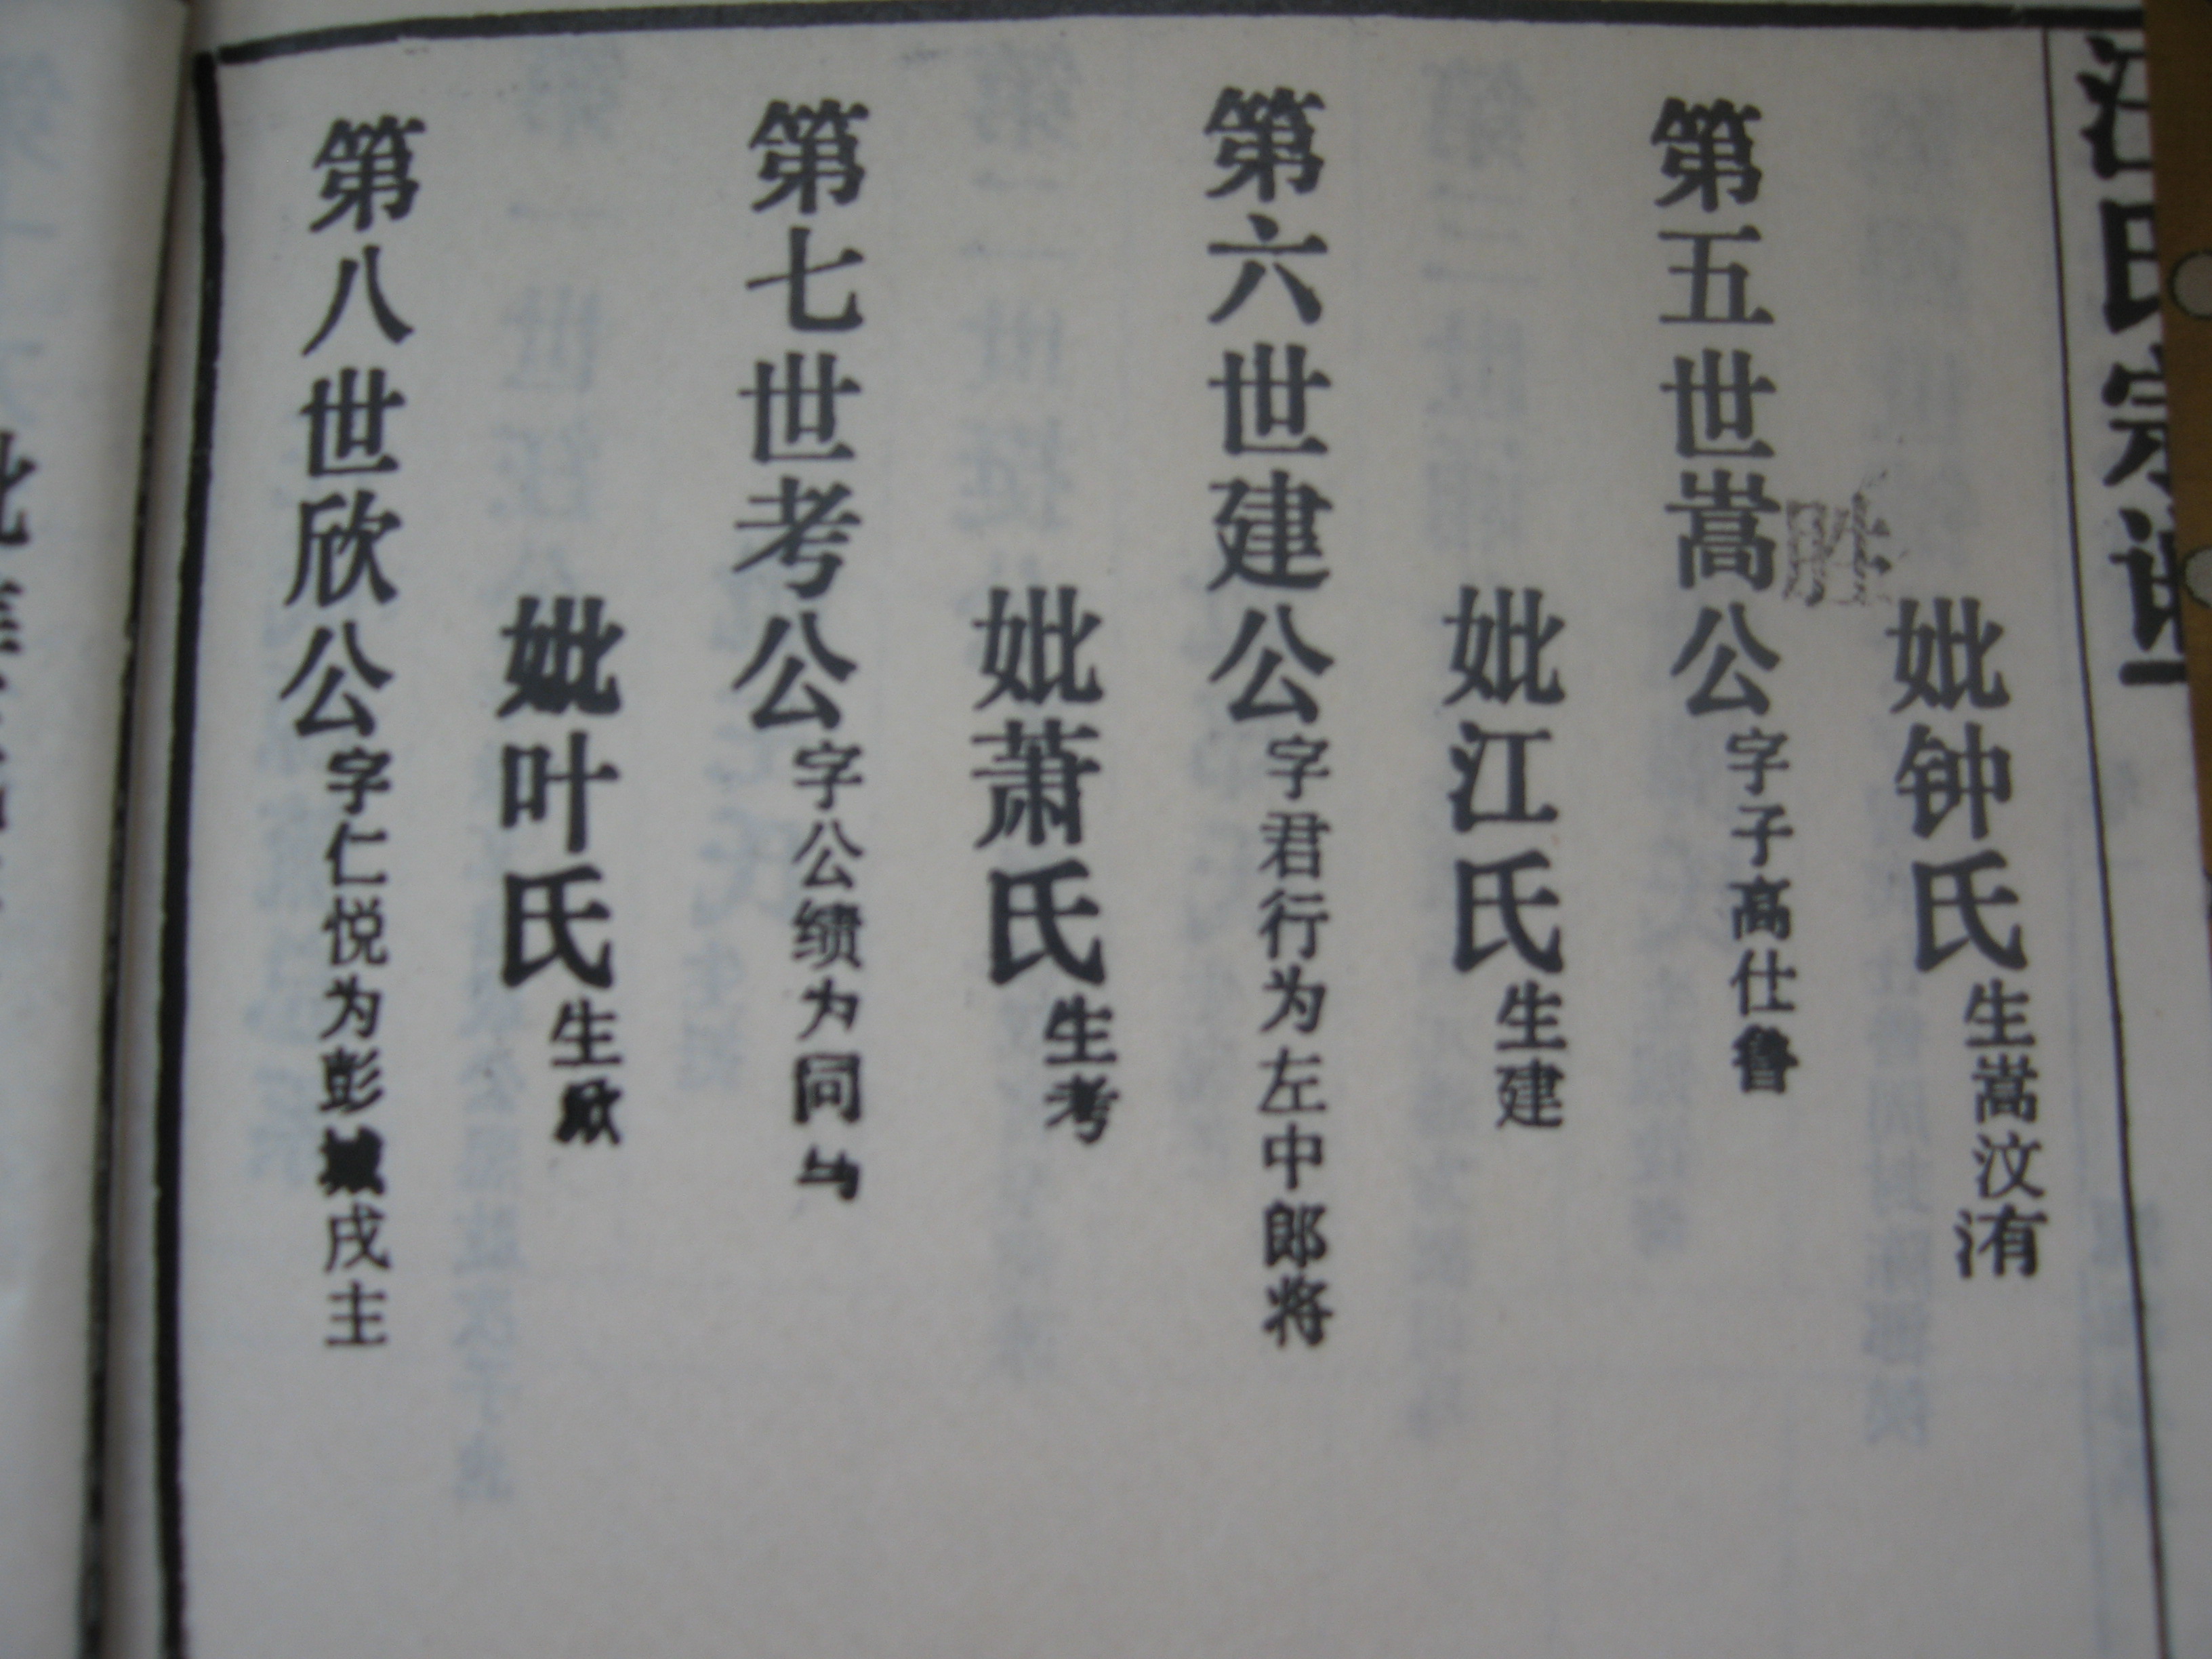 江氏宗谱
妣钟氏生嵩汶洧
第五世嵩公字子高仕鲁
妣江氏生建
第六世建公字君行为左中郎将
妣萧氏生考
第七世考公字公绩为同
妣叶氏生欣
第八世欣公字仁悦为彭城戌主
妣